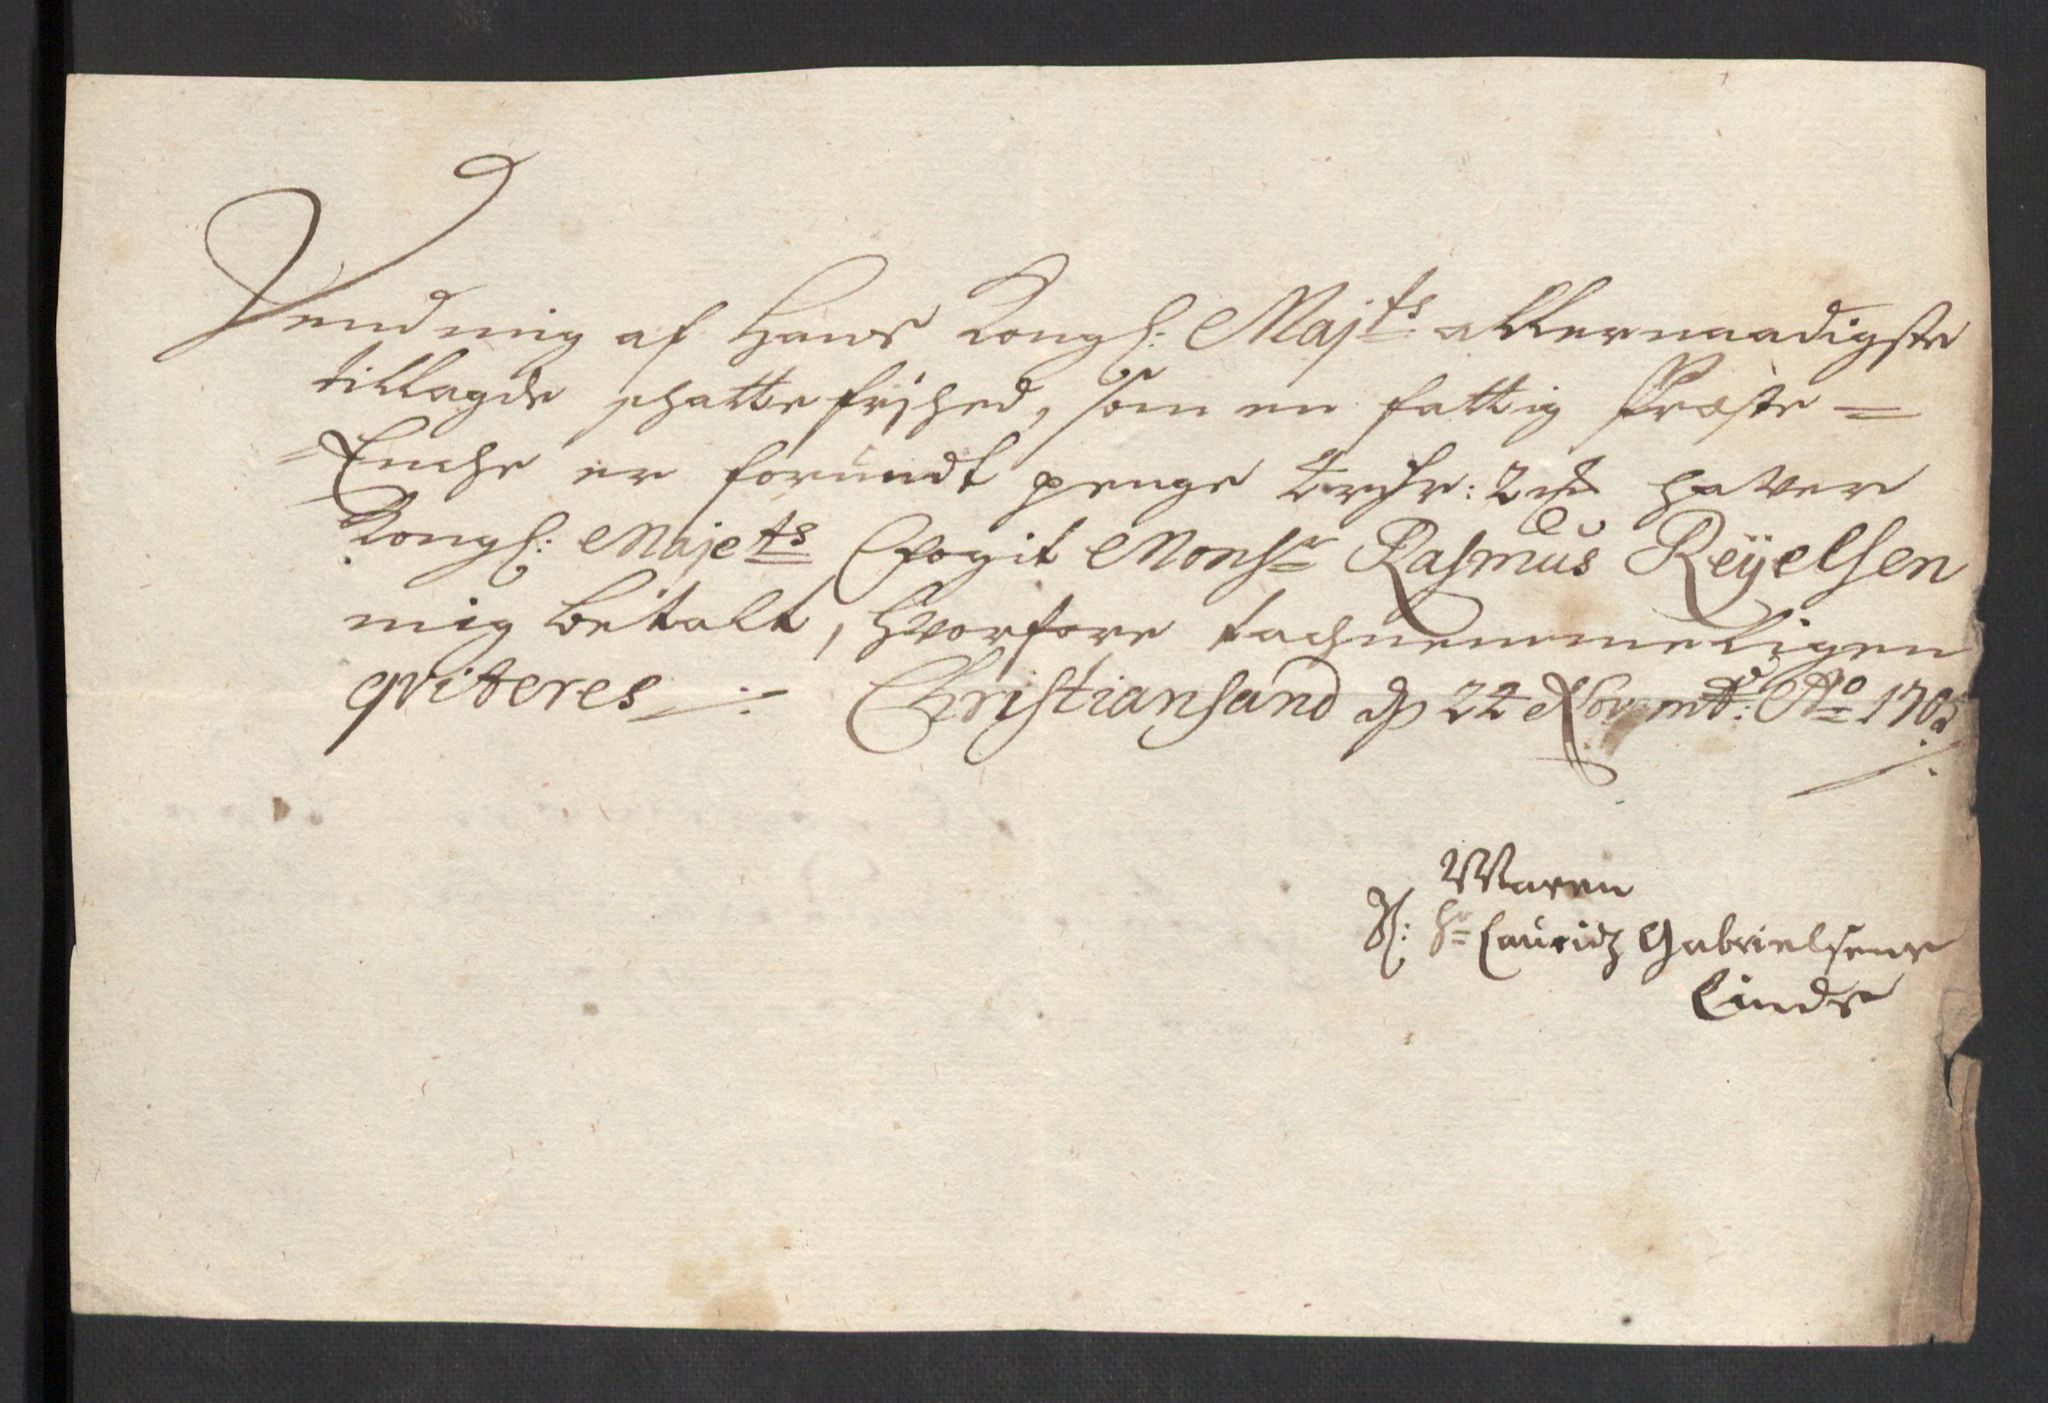 Vend mig af Hans Kongl: Majts allernaadigste
tillagde schattefrjhed, som en fattig Præste=
=Enche er forundt penge haver
Kongl: Majets fogit Monsr Rasmus Reÿelsen
mig betalt, hvorfore tachnemmeligen
qviteres Christiansand d 24 Novembr: Ao 1705
Maren
Sl: Hr Lauridz Gabrielsens
Linds